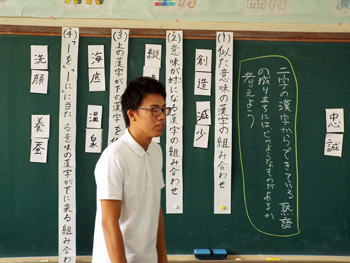 忠誠
二字の漢字からできている熟語
の成り立ちにはどのようなものがあるか
考えよう
(1)似た意味の漢字の組み合わせ
創造
減少
(2)意味が対になる漢字の組み合わせ
縦
(3)上の漢字が下の漢字を
海底
温泉
(4)「を」「に」に当たる意味の漢字が下に来る組み合わ
洗顔
養蚕